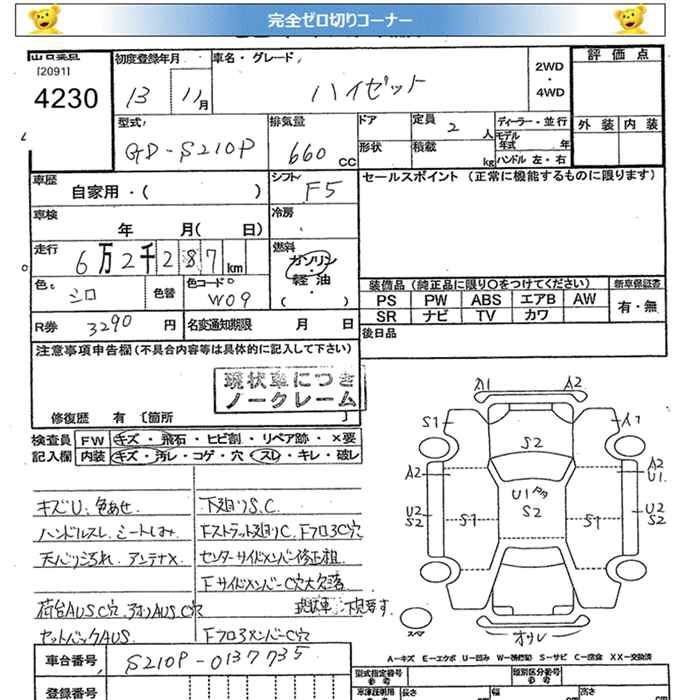 完全ゼロ切りコーナー
[2091]
4230
初度登録年月
13 11月
車名・グレード
ハイゼット
2WD
・
4WD
評価点
外装 内装
型式
GD-S210P
排気量
660 CC
ドア
形状
定員 2 人
積載 kg
ディーラー・並行
モデル年式 年
ハンドル 左・右
車歴
自家用・( )
シフト
F5
セールスポイント (正常に機能するものに限ります)
車検
年 月( 日)
冷房
走行
6万2千287km
燃料
ガソリン
・
軽油
・
( )
色
シロ
色替
色コード
W09
装備品(純正品に限り○をつけてください)
新車保証書
PS PW ABS エアB AW
有・無
SR ナビ TV カワ
R券 3290 円
名変通知期限 月 日
後日品
注意事項申告欄(不具合内容等は具体的に記入して下さい)
現状車につき
ノークレーム
修復歴 有 〔箇所 〕
検査員記入欄
FW キズ・飛石・ヒビ割・リペア跡・×要
内装 キズ・汚レ・コゲ・穴・スレ・キレ・破レ
キズU、色あせ
下廻りS、C
ハンドルスレ、シートしみ
Fストラット廻りC、Fフロ3C穴
アンテナX
センターサイドメンバー修正粗
FサイドメンバーC穴大欠落
荷台AUSC穴、アオリAUSC穴
現状車、下見要す
セットバックAUS
A1 A2
S1 S2 A1
A2 A2
U1
U1
S2
U2
S2
S1 S1
U2
S2
スマ
オサレ
A－キズ E－エクボ U－凹み W－補修跡 S－サビ C－腐食 XX－交換済
車台番号 S210P-0137735
登録番号
型式指定番号
参考
類別区分番号
長さ
幅
高さ
参考